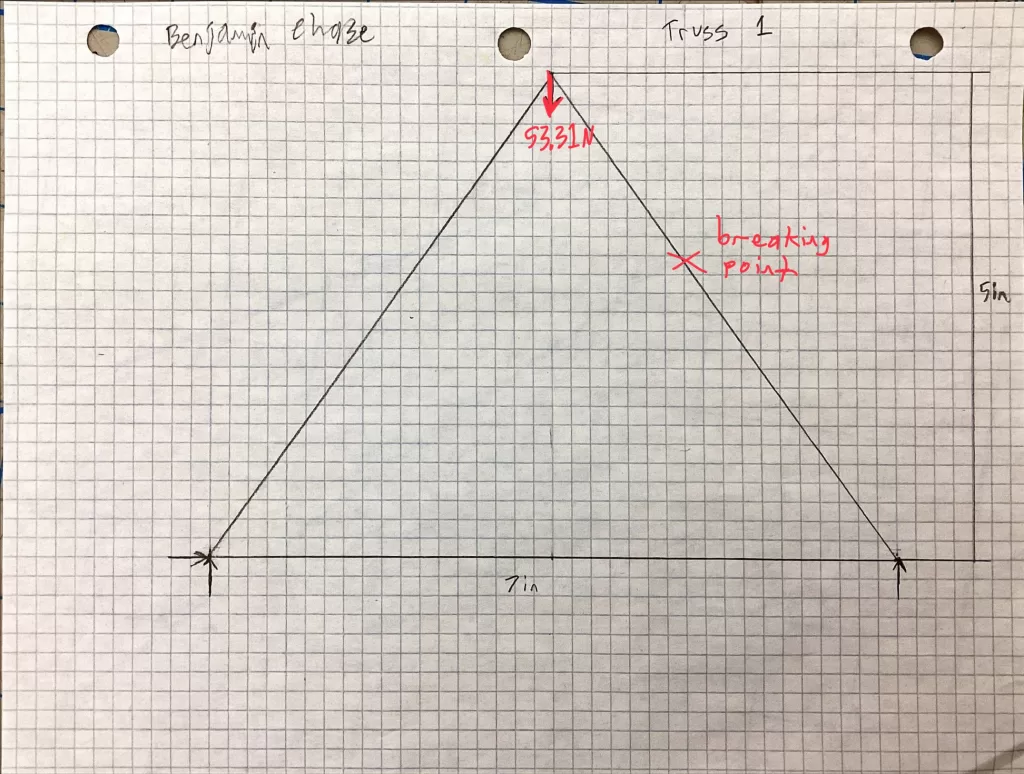 Benjamin Chase
Truss 1
53.31N
breaking
point
5in
7in